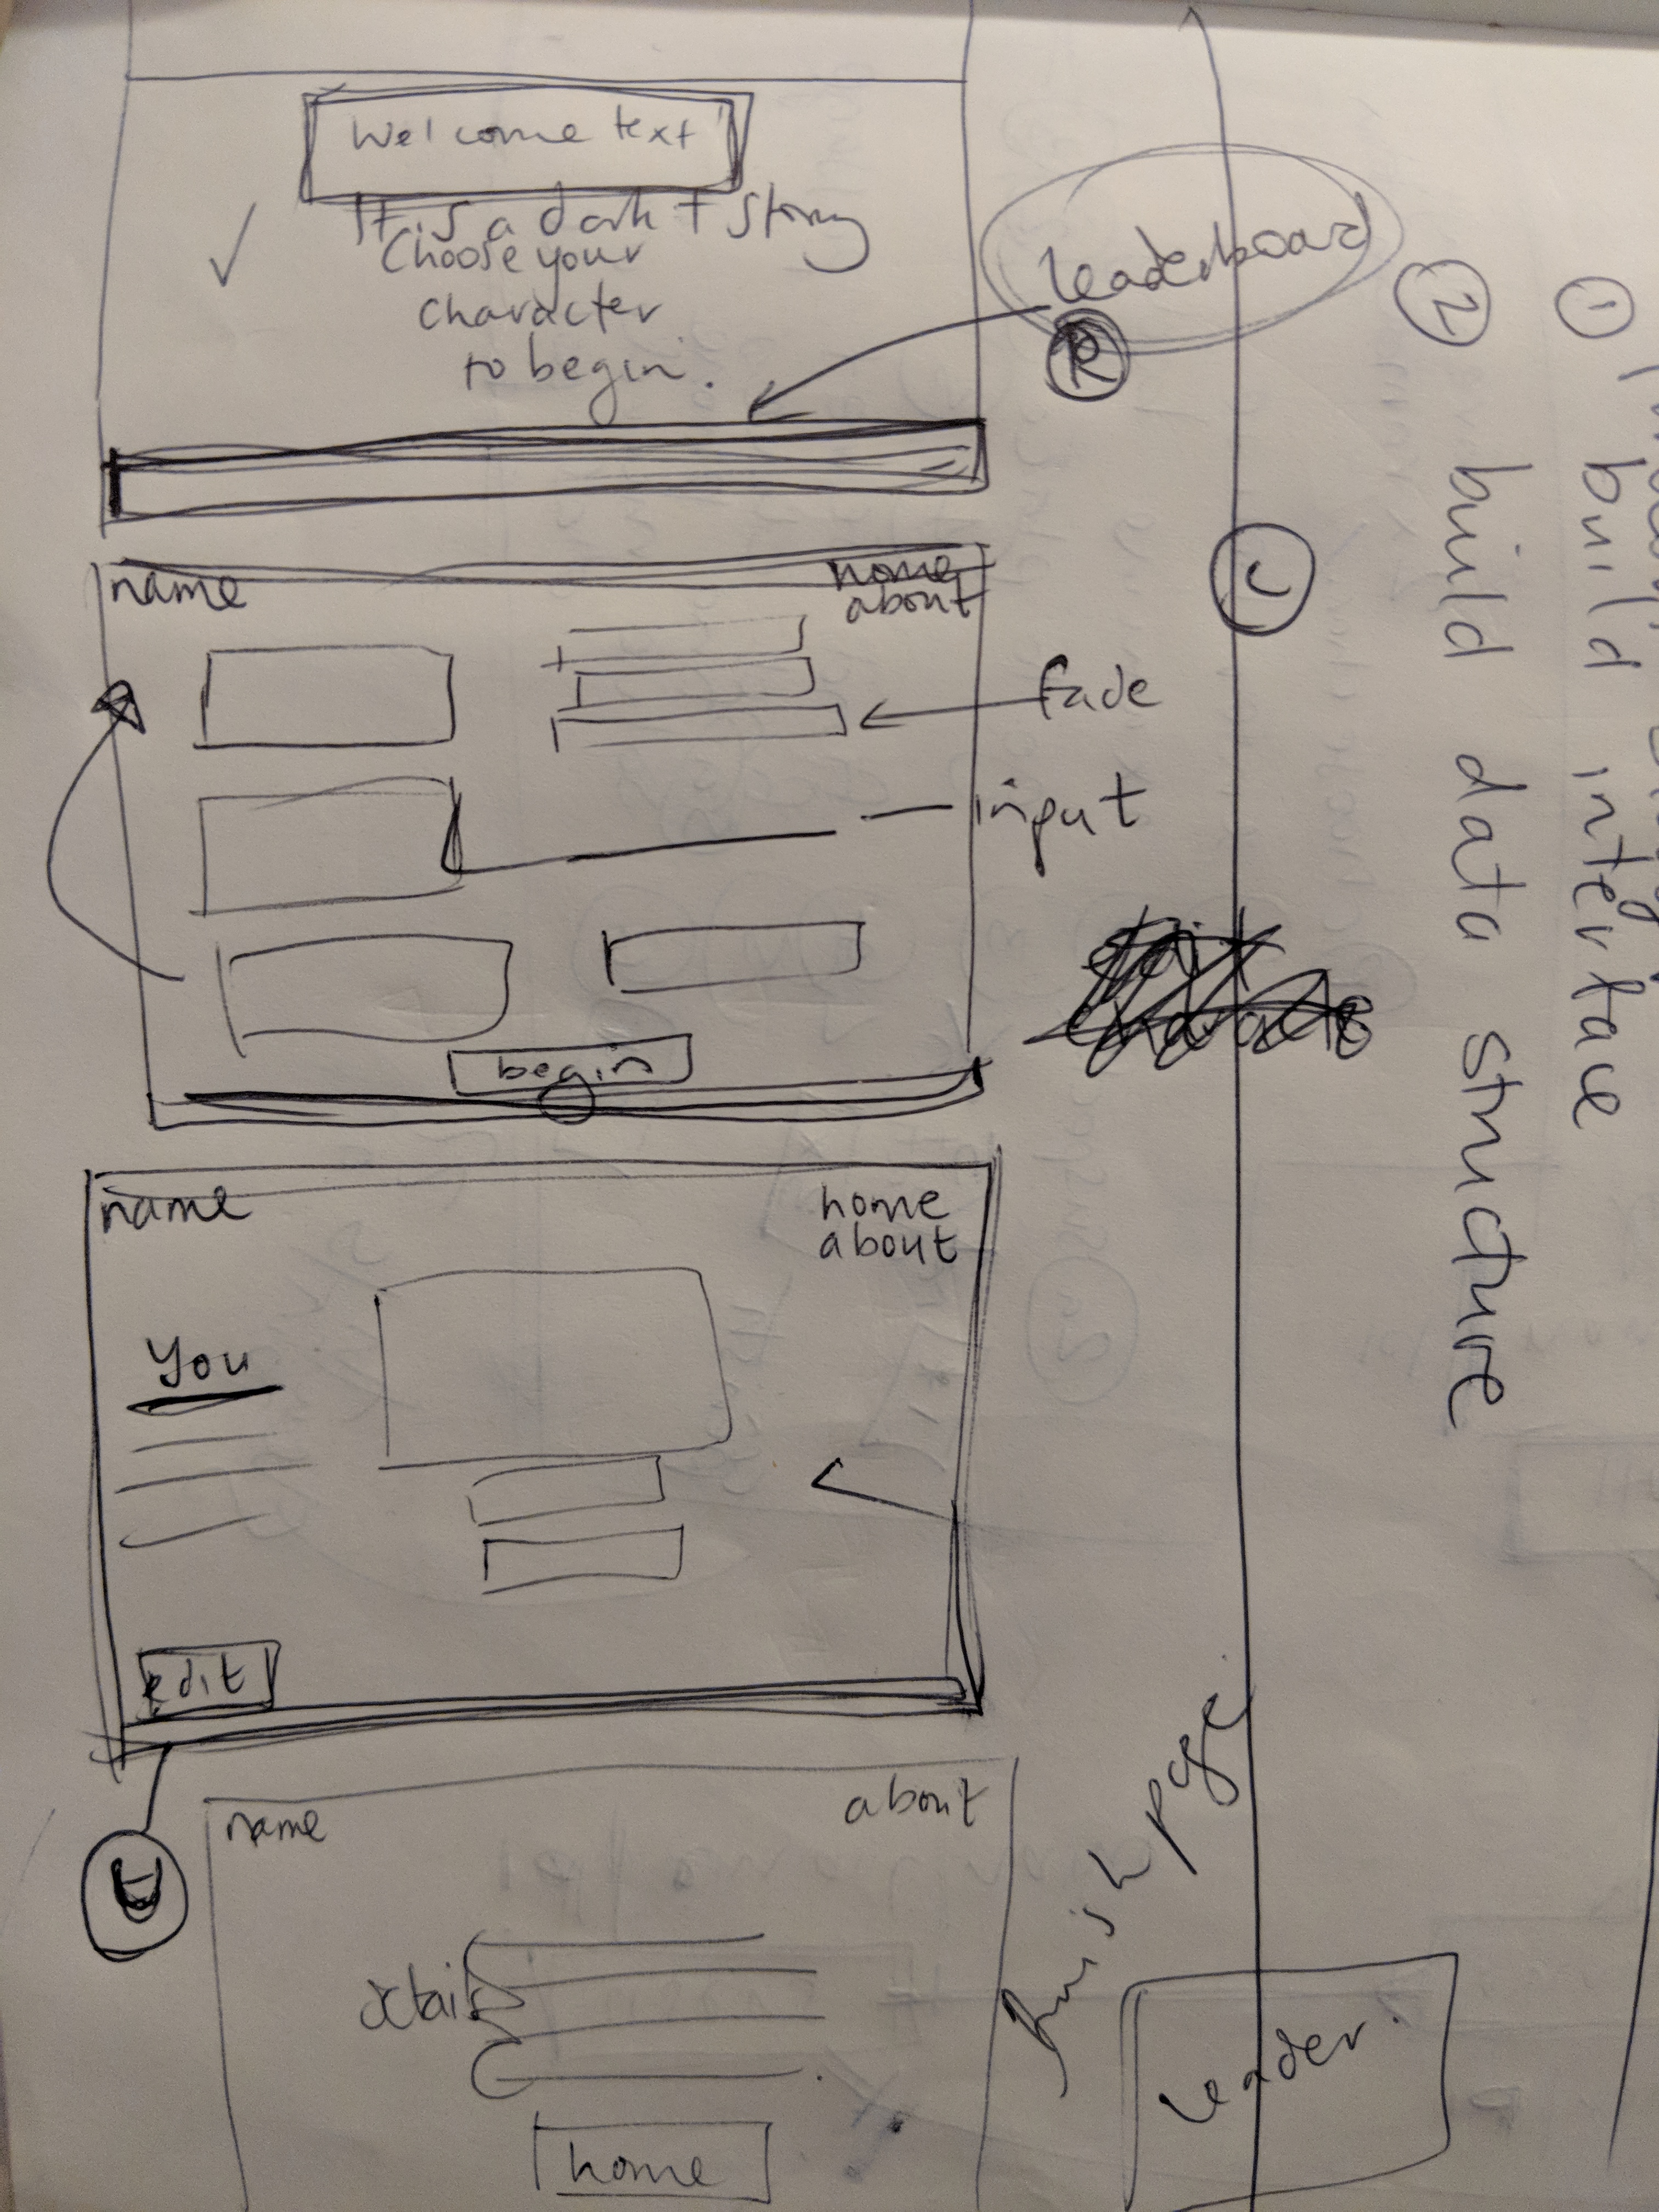 Welcome text
It is a dark + stormy
Choose your
character
to begin.
leaderboard
R
name
home
about
fade
input
begin
C
name
home
about
You
edit
U
name
about
details
home
finish page
Leader.
①
build interface
②
build data structure